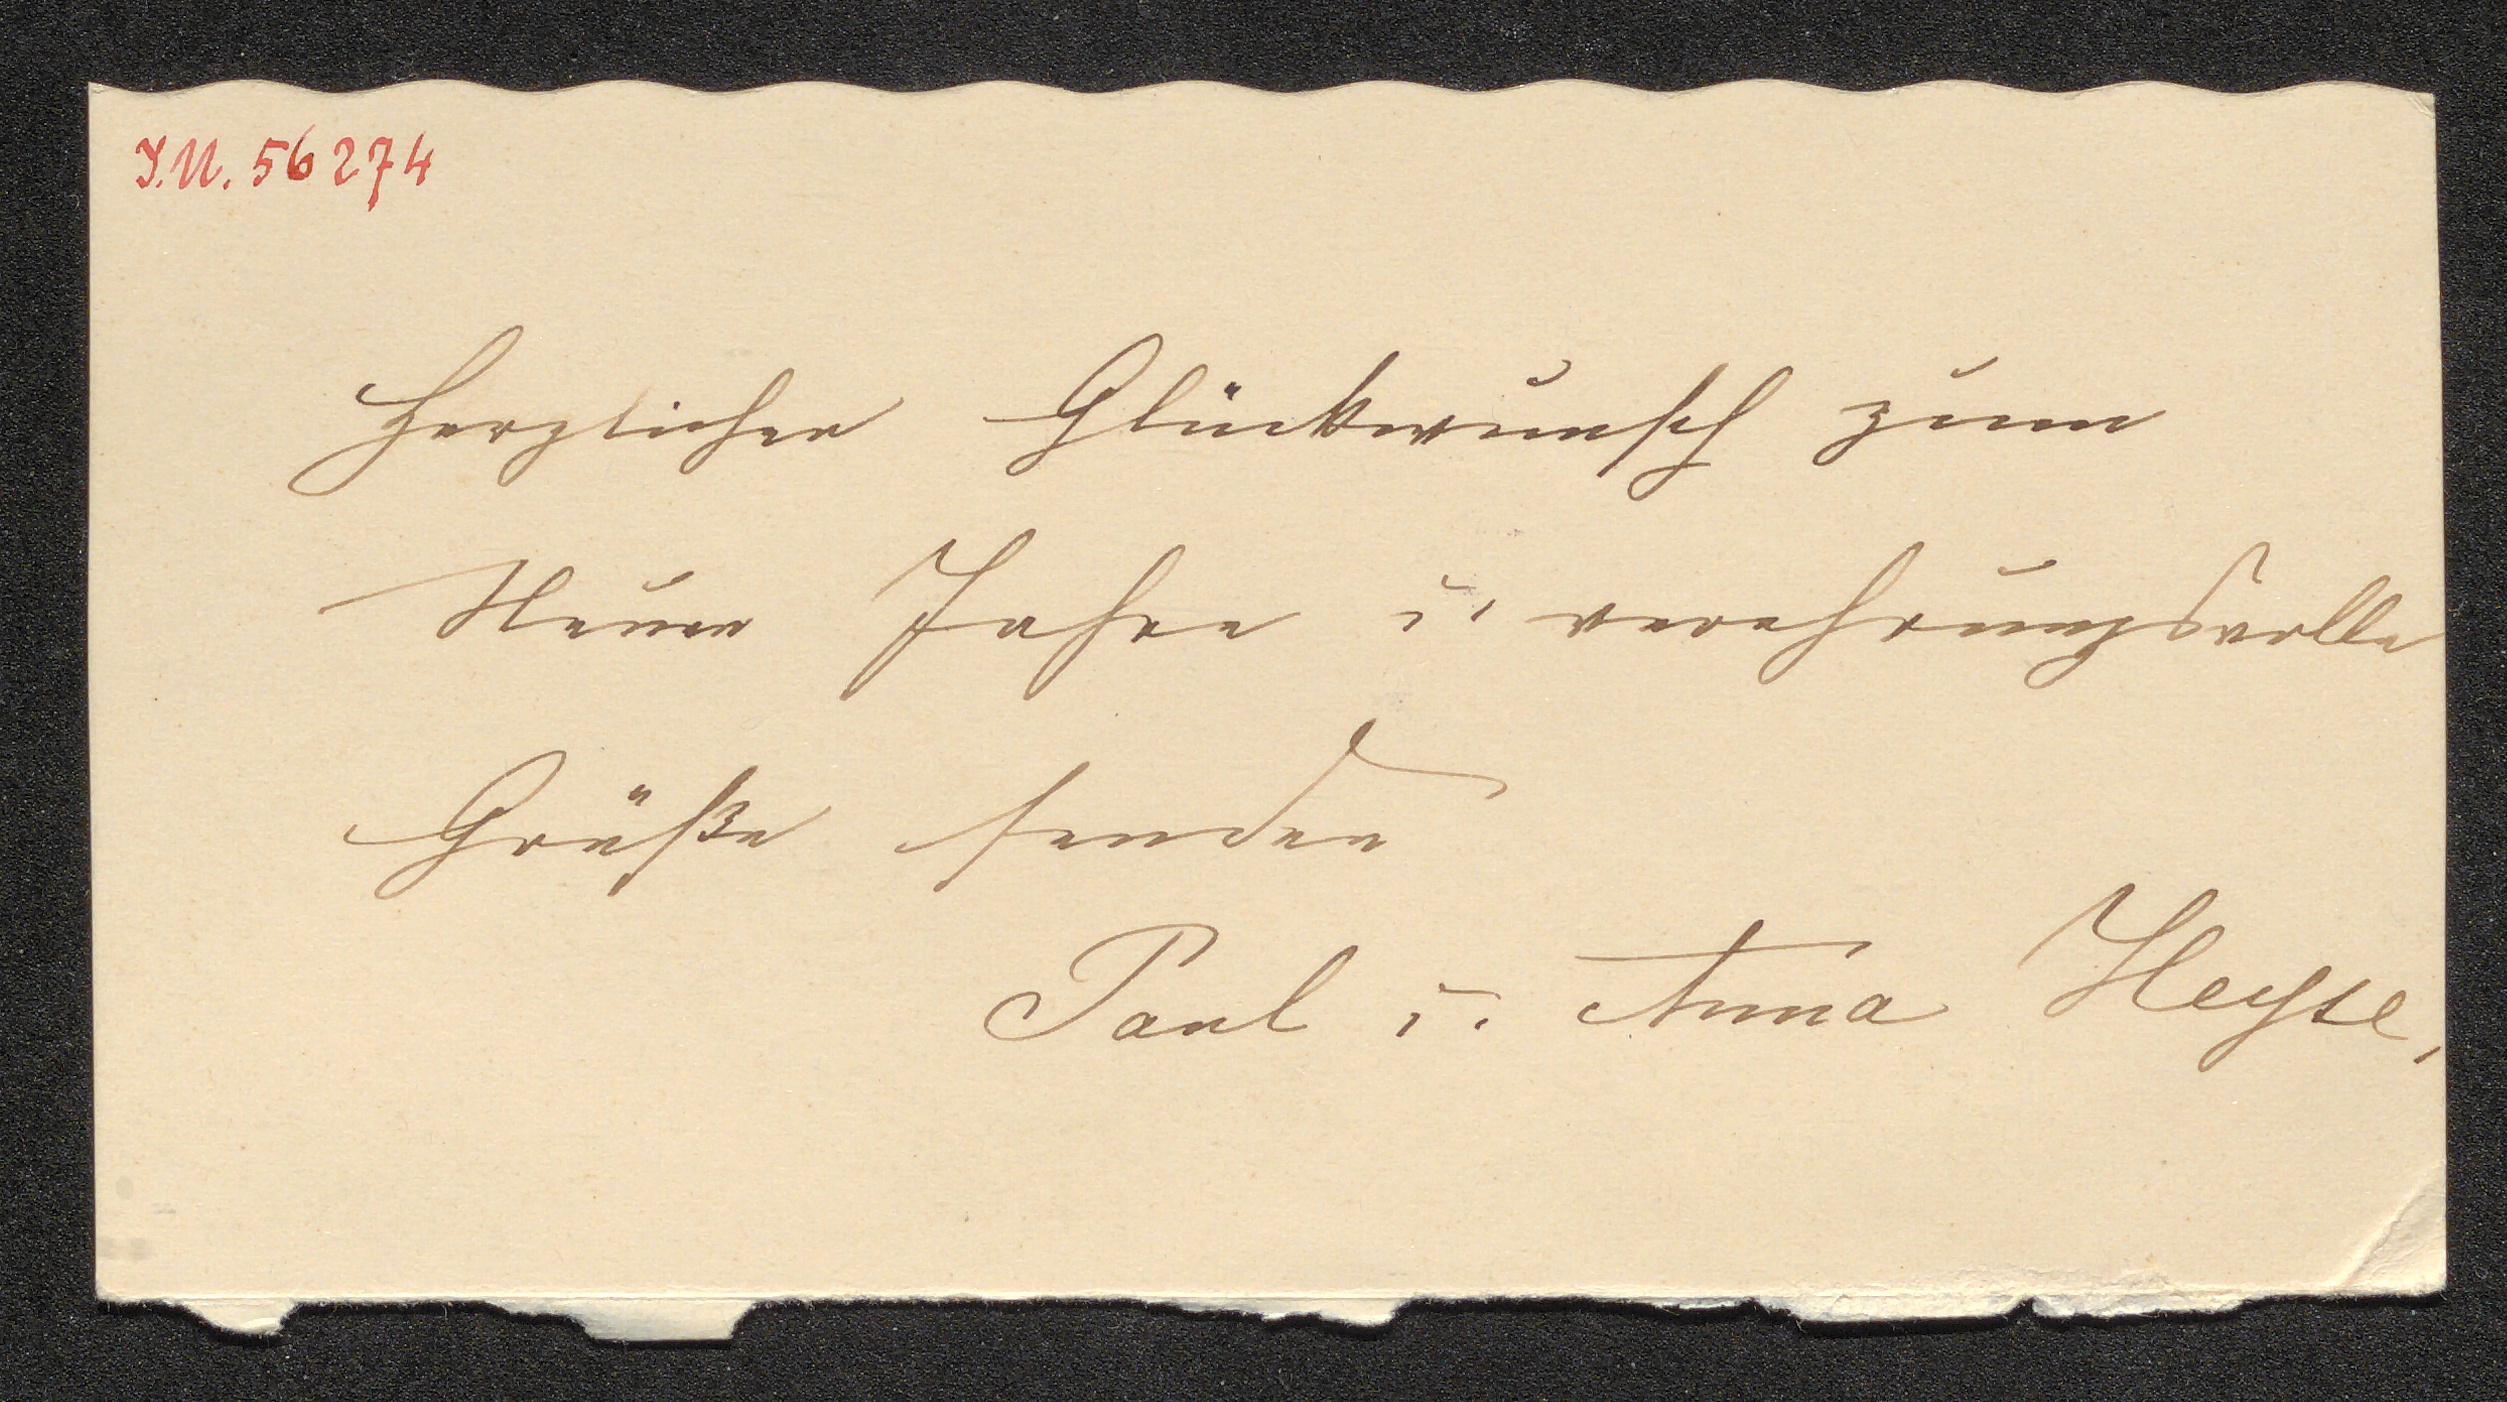 I.N. 56274
Herzlichen Glückwunsch zum
Neuen Jahre u. verehrungsvolle
Grüße senden
Paul u. Anna Heyse,